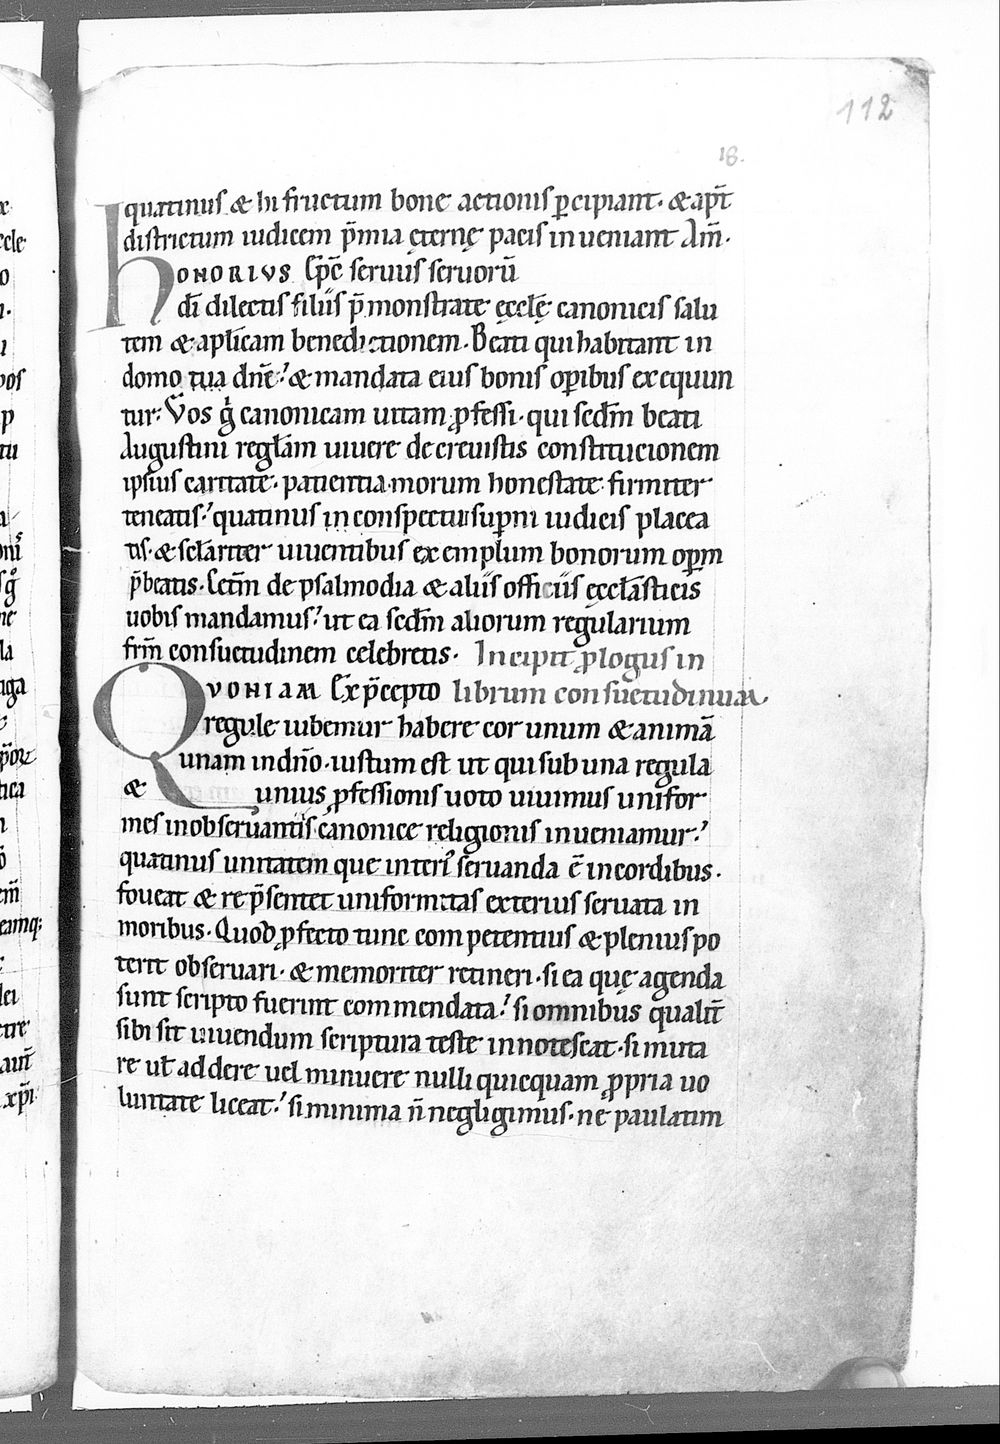 112
18.
quatinus & hi fructum bone actionis p̱cipiant. & apt̄
districtum iudicem p̄mia ęternę pacis inueniant Am̄.
HONORIVS Ep̄c seruus seruorū
dī dilectis filiis p̄monstrate ęcclę̄ canonicis salu
tem & apl̄icam benedictionem. Beati qui habitant in
domo tua dn̄e & mandata eius bonis op̱ibus exequun
tur: Vos gͥ canonicam uitam ꝓfessi. qui sedm̄ beati
Augustini regl̄am uiuere decreuistis constitucionem
ipsius caritate. patientia. morum honestate firmiter
teneatis. quatinus in conspectu sup̱ni iudicis placea
tis. & scl̄ariter uiuentibus exemplum bonorum op̱m
p̄beatis. Sctm̄ de psalmodia & aliis officiis ęccl̄asticis
uobis mandamus ut ea sedm̄ aliorum regularium
frm̄ consuetudinem celebretis. Incipit ꝓlogus in
QVONIAM Ex p̄cepto librum consuetudinum
regule iubemur habere cor unum & animā
unam in dn̄o. iustum est ut qui sub una regula
& unius ꝓfessionis uoto uiuimus unifor
mes in obseruantiis canonice religionis inueniamur.
quatinus unitatem que interiꝰ seruanda ē in cordibus.
foueat & rep̄sentet uniformitas exterius seruata in
moribus. Quod ꝓfecto tunc competentius & plenius po
terit obseruari. & memoriter retineri. si ea quę agenda
sunt scripto fuerint commendata. si omnibus qualit̄
sibi sit uiuendum scriptura teste innotescat. si muta
re ul̄ addere uel minuere nulli quicquam ꝓpria uo
luntate liceat. si minima n̄ negligimus. ne paulatim